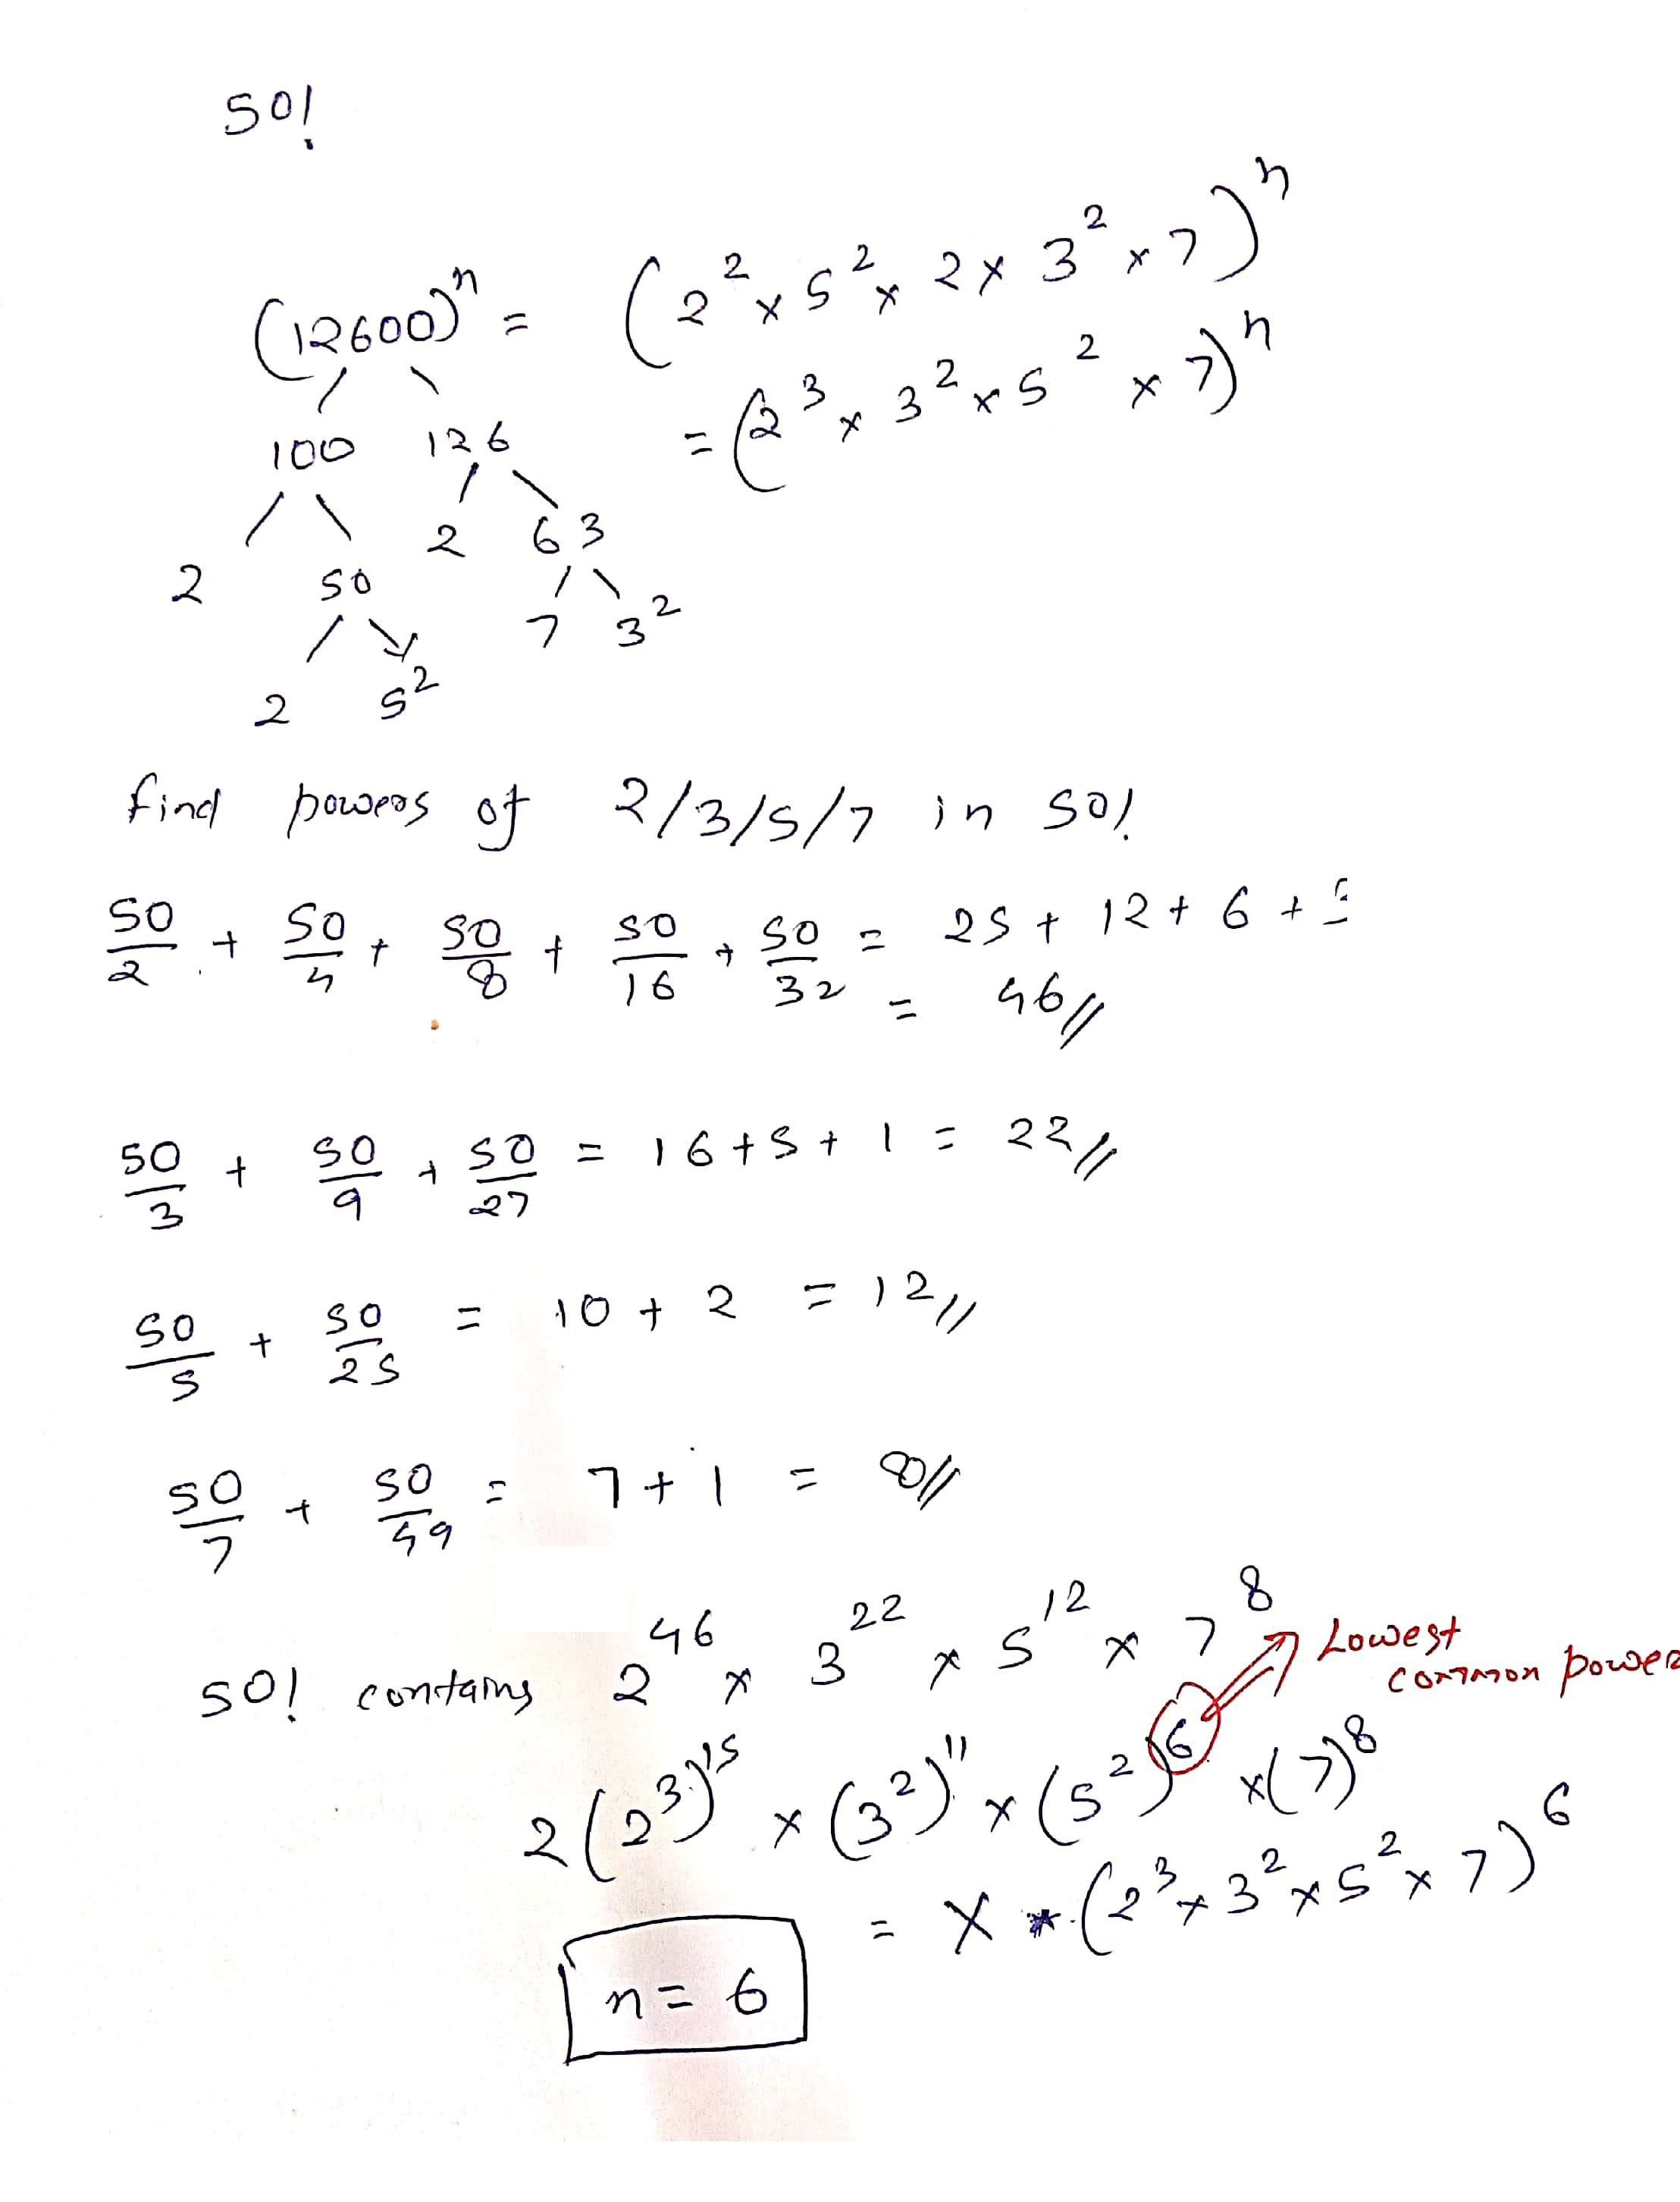 50!
(12600)ⁿ = (2² × 5² × 2 × 3² × 7)ⁿ
= (2³ × 3² × 5² × 7)ⁿ
100 126
2 63
2 50
7 3²
2 5²
find powers of 2/3/5/7 in 50!
50/2 + 50/4 + 50/8 + 50/16 + 50/32 = 25 + 12 + 6 +
= 46//
50/3 + 50/9 + 50/27 = 16 + 5 + 1 = 22//
50/5 + 50/25 = 10 + 2 = 12//
50/7 + 50/49 = 7 + 1 = 8//
50! contains 2⁴⁶ × 3²² × 5¹² × 7⁸
Lowest
common power
2(2³)¹⁵ × (3²)¹¹ × (5²)⁶ × (7)⁸
= X * (2³ × 3² × 5² × 7)⁶
n = 6